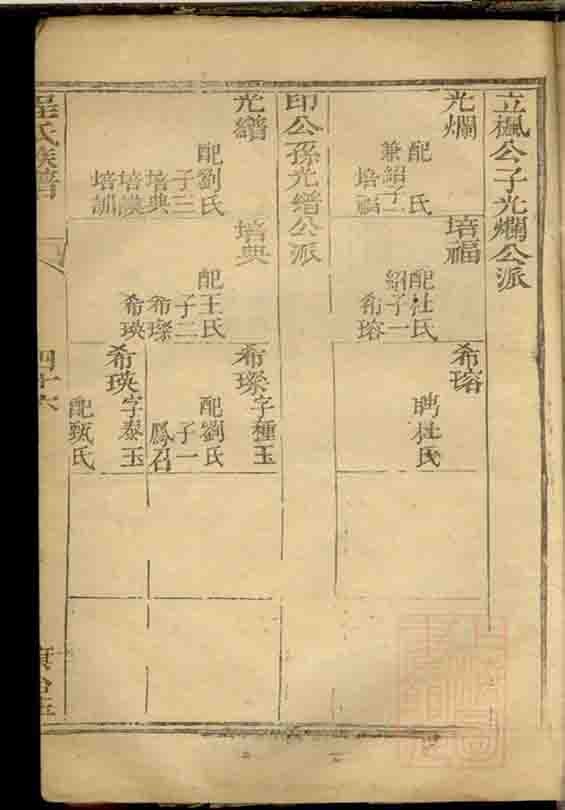 立楓公子光爛公派
光爛
配 氏
兼紹子一
培福
培福
配杜氏
紹子一
希瑢
希瑢
聘杜氏
印公孫光縉公派
光纘
配劉氏
子三
培典
培謨
培訓
培典
配王氏
子二
希璨
希瑛
希璨字種玉
配劉氏
子一
鳳召
希瑛字泰玉
配甄氏
程氏族譜
四十六